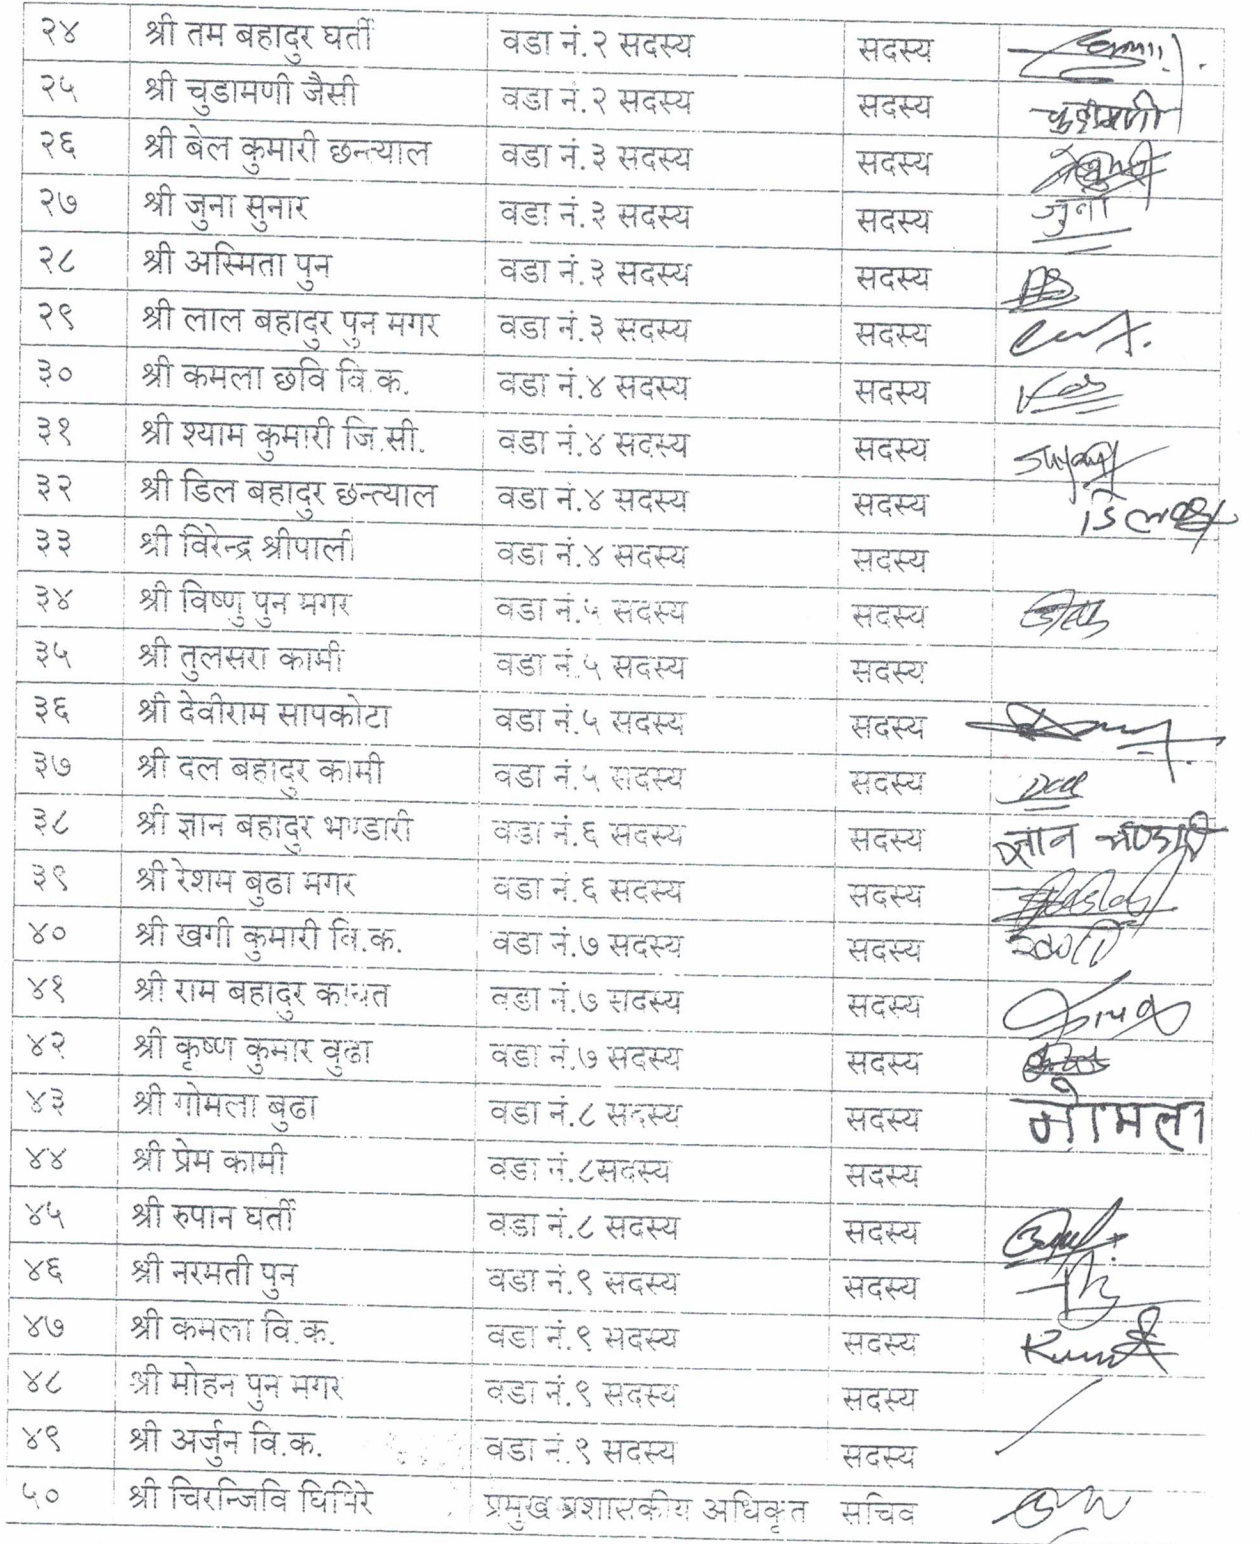 २४ श्री तम बहादुर घर्ती वडा नं.२ सदस्य सदस्य
२५ श्री चुडामणी जैसी वडा नं.२ सदस्य सदस्य चुडामणी
२६ श्री बेल कुमारी छन्त्याल वडा नं.३ सदस्य सदस्य
२७ श्री जुना सुनार वडा नं.३ सदस्य सदस्य जुना
२८ श्री अस्मिता पुन वडा नं.३ सदस्य सदस्य
२९ श्री लाल बहादुर पुन मगर वडा नं.३ सदस्य सदस्य
३० श्री कमला छवि वि.क. वडा नं.४ सदस्य सदस्य
३१ श्री श्याम कुमारी जि.सी. वडा नं.४ सदस्य सदस्य
३२ श्री डिल बहादुर छन्त्याल वडा नं.४ सदस्य सदस्य
३३ श्री विरेन्द्र श्रीपाली वडा नं.४ सदस्य सदस्य
३४ श्री विष्णु पुन मगर वडा नं.५ सदस्य सदस्य
३५ श्री तुलसरा कामी वडा नं.५ सदस्य सदस्य
३६ श्री देवीराम सापकोटा वडा नं.५ सदस्य सदस्य
३७ श्री दल बहादुर कामी वडा नं.५ सदस्य सदस्य
३८ श्री ज्ञान बहादुर भण्डारी वडा नं.६ सदस्य सदस्य ज्ञान भण्डारी
३९ श्री रेशम बुढा मगर वडा नं.६ सदस्य सदस्य
४० श्री खगी कुमारी वि.क. वडा नं.७ सदस्य सदस्य
४१ श्री राम बहादुर कायत वडा नं.७ सदस्य सदस्य
४२ श्री कृष्ण कुमार वुढा वडा नं.७ सदस्य सदस्य
४३ श्री गोमला बुढा वडा नं.८ सदस्य सदस्य गोमला
४४ श्री प्रेम कामी वडा नं.८सदस्य सदस्य
४५ श्री रुपान घर्ती वडा नं.८ सदस्य सदस्य
४६ श्री नरमती पुन वडा नं.९ सदस्य सदस्य
४७ श्री कमला वि.क. वडा नं.९ सदस्य सदस्य
४८ श्री मोहन पुन मगर वडा नं.९ सदस्य सदस्य
४९ श्री अर्जुन वि.क. वडा नं.९ सदस्य सदस्य
५० श्री चिरन्जिवि घिमिरे प्रमुख प्रशासकीय अधिकृत सचिव